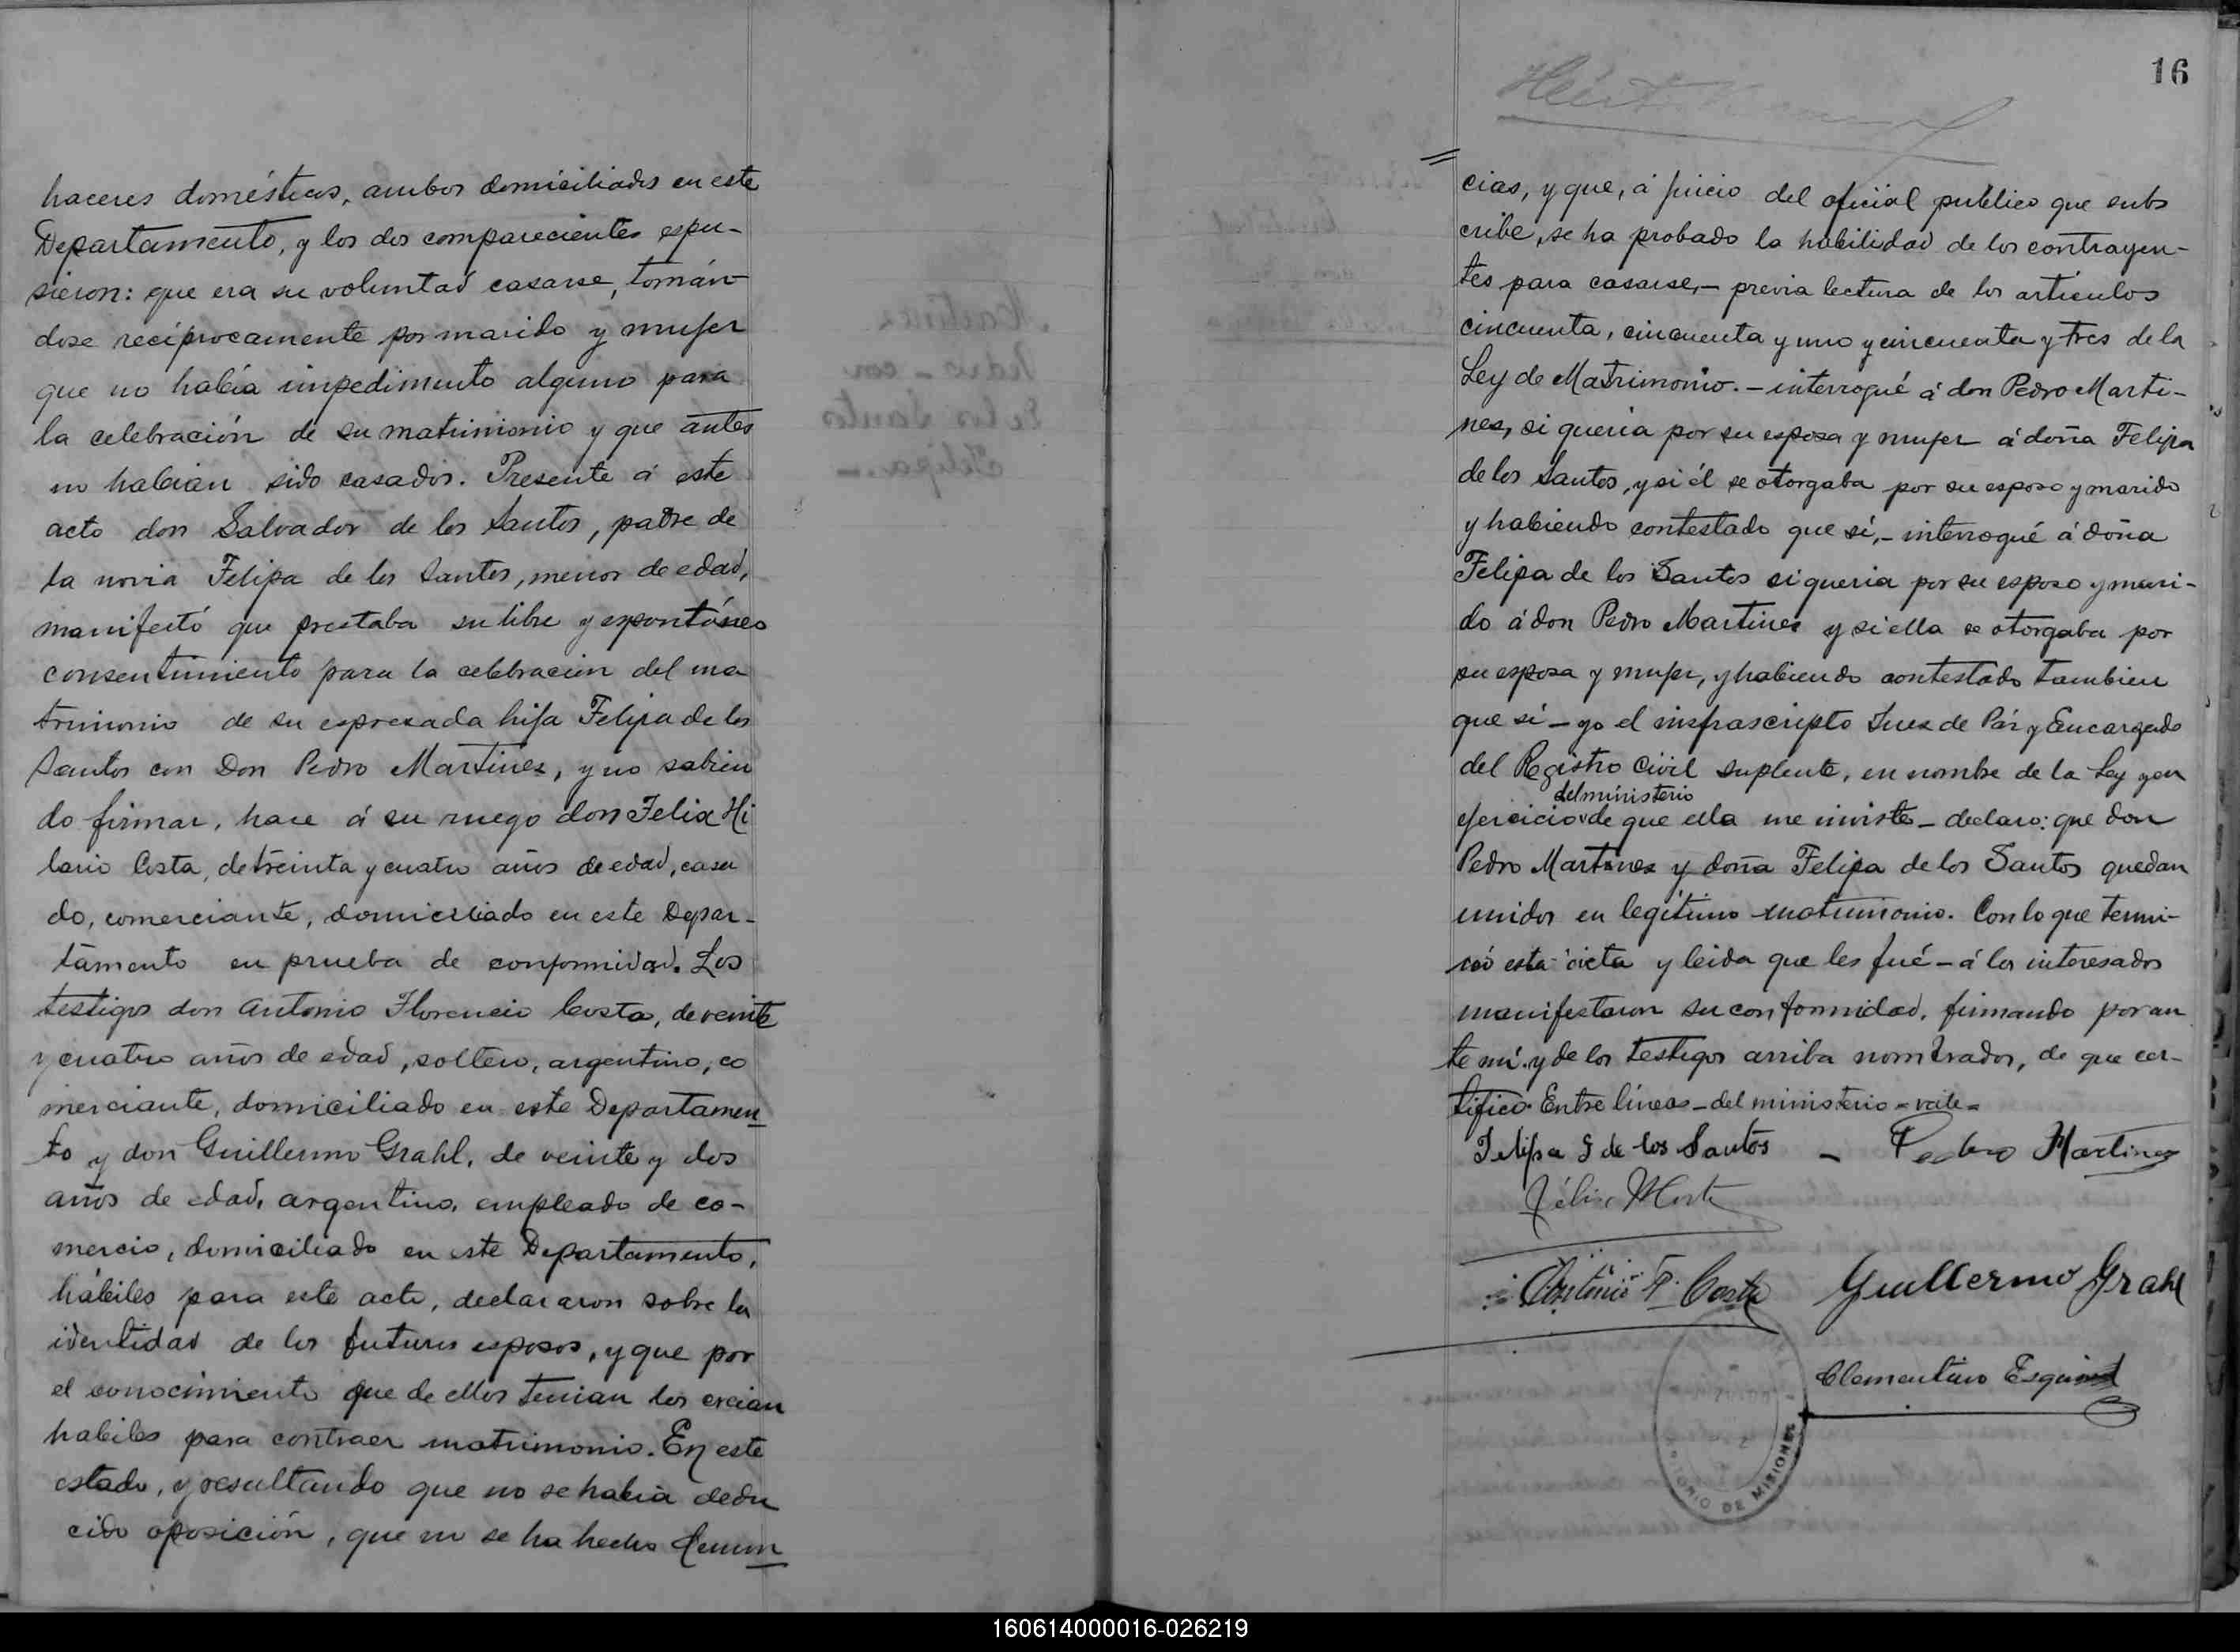 haceres domésticos, ambos domiciliados en este
Departamento, y los dos comparecientes espu-
sieron: que era su voluntad casarse, tomán-
dose recíprocamente por marido y mujer
que no había impedimento alguno para
la celebración de su matrimonio y que antes
no habian sido casados. Presente á este
acto don Salvador de los Santos, padre de
la novia Felipa de los Santos, menor de edad,
manifestó que prestaba su libre y espontáneo
consentimiento para la celebracion del ma
trimonio de su espresada hija Felipa de los
Santos con Don Pedro Martines, y no sabien
do firmar, hace á su ruego don Felix Hi
lario Costa, de treinta y cuatro años de edad, casa
do, comerciante, domiciliado en este Depar-
tamento en prueba de conformidad. Los
testigos don Antonio Florencio Costa, de veinte
y cuatro años de edad, soltero, argentino, co
merciante, domiciliado en este Departamen
to y don Guillermo Grahl, de veinte y dos
años de edad, argentino, empleado de co-
mercio, domiciliado en este Departamento,
hábiles para este acto, declararon sobre la
identidad de los futuros esposos, y que por
el conocimiento que de ellos tenian los creian
habiles para contraer matrimonio. En este
estado, y resultando que no se habia dedu
cido oposición, que no se ha hecho denun
16
cias, y que, á juicio del oficial publico que subs
cribe, se ha probado la habilidad de los contrayen-
tes para casarse,- previa lectura de los artículos
cincuenta, cincuenta y uno y cincuenta y tres de la
Ley de Matrimonio.- interrogué á don Pedro Marti-
nes, si queria por su esposa y mujer á doña Felipa
de los Santos, y si él se otorgaba por su esposo y marido
y habiendo contestado que sí,- interrogué á doña
Felipa de los Santos si queria por su esposo y mari-
do á don Pedro Martines y si ella se otorgaba por
su esposa y mujer, y habiendo contestado tambien
que sí - yo el infrascripto Juez de Paz y Encargado
del Registro Civil suplente, en nombre de la Ley y en
del ministerio
ejercicio de que ella me inviste - declaro: que don
Pedro Martines y doña Felipa de los Santos quedan
unidos en legítimo matrimonio. Con lo que termi-
nó esta acta y leida que les fué - á los interesados
manifestaron su conformidad, firmando por an
te mí y de los testigos arriba nombrados, de que cer-
tifico. Entre líneas - del ministerio - vale -
Felipa S de los Santos - Pedro Martines
Félix
Antonio F. Costa Guillermo Grahl
Clementino
DE MISIONES
160614000016-026219